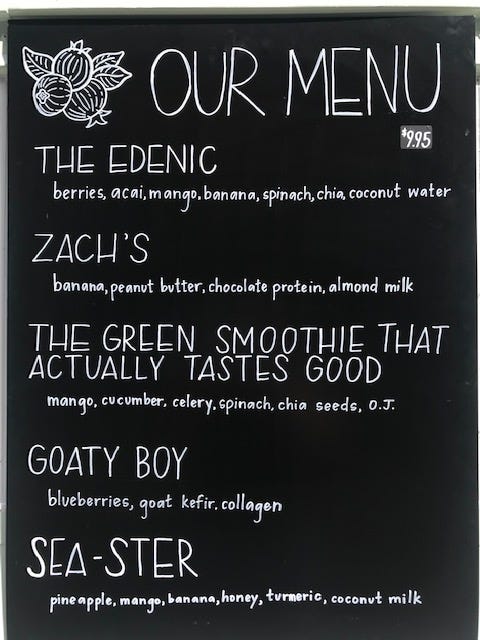 OUR MENU
$9.95
THE EDENIC
berries, acai, mango, banana, spinach, chia, coconut water
ZACH'S
banana, peanut butter, chocolate protein, almond milk
THE GREEN SMOOTHIE THAT
ACTUALLY TASTES GOOD
mango, cucumber, celery, spinach, chia seeds, O.J.
GOATY BOY
blueberries, goat kefir, collagen
SEA-STER
pineapple, mango, banana, honey, turmeric, coconut milk